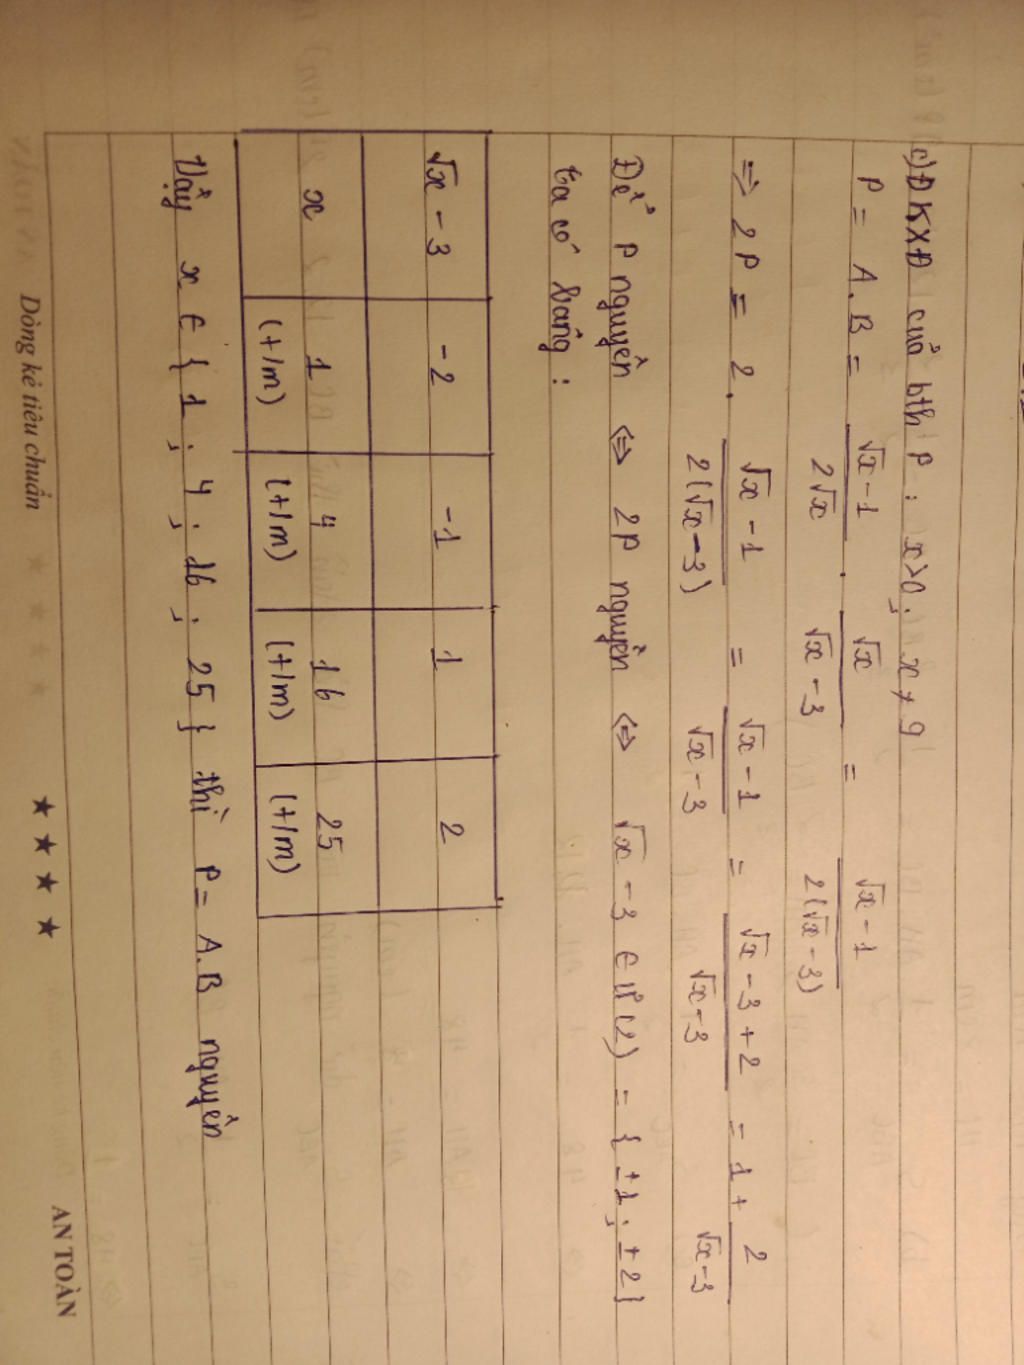 c) ĐKXĐ của bth P : x>0; x ≠ 9
P = A.B = (√x - 1)/(2√x) . √x/(√x - 3) = (√x - 1)/(2(√x - 3))
=> 2P = 2. (√x - 1)/(2(√x - 3)) = (√x - 1)/(√x - 3) = (√x - 3 + 2)/(√x - 3) = 1 + 2/(√x - 3)
Để P nguyên <=> 2P nguyên <=> √x - 3 ∈ Ư(2) = { ±1 ; ±2}
ta có bảng :
√x - 3 -2 -1 1 2
x 1 4 16 25
(t/m) (t/m) (t/m) (t/m)
Vậy x ∈ { 1 ; 4 ; 16 ; 25 } thì P = A.B nguyên
Dòng kẻ tiêu chuẩn ★ ★ ★ ★ AN TOÀN